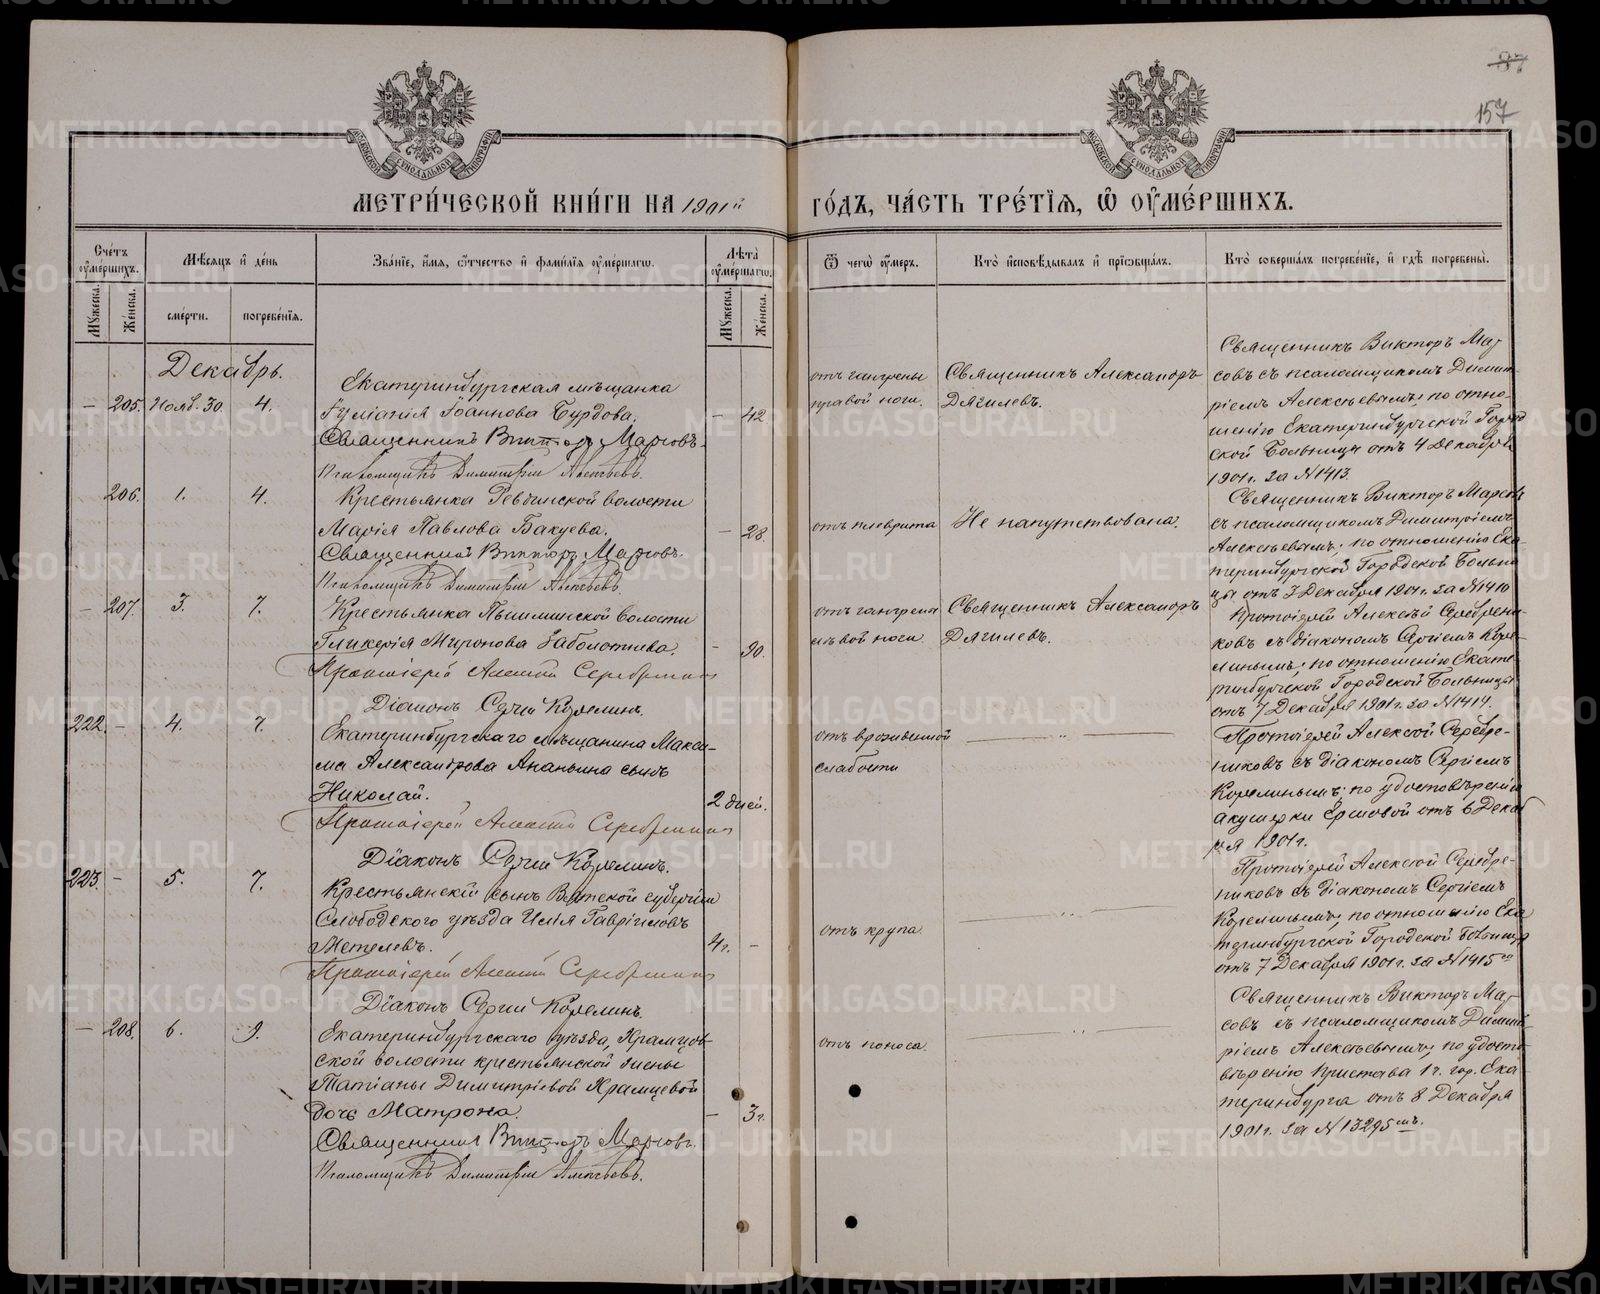 87
157
МЕТРИ́ЧЕСКОЙ КНИ́ГИ НА 1901й
ГО́ДЪ, ЧА́СТЬ ТРЕ́ТІЯ, Ѿ ОУМЕ́РШИХЪ.
Сче́тъ оуме́ршихъ.
Мужеска.
Же́нска.
Мѣ́сяцъ и де́нь
сме́рти.
погребе́нія.
Зва́ніе, и́мя, о́тчество и фами́лія оуме́ршагѡ.
Лѣ́та оуме́ршагѡ.
Мужеска.
Же́нска.
Ѿ чегѡ̀ оу́меръ.
Кто̀ исповѣ́дывалъ и пріѡбща́лъ.
Кто̀ соверша́лъ погребе́ніе, и гдѣ̀ погребены̀.
Декабрь.
– 205. Нояб. 30. 4.
Екатеринбургская мѣщанка
Іуліанія Іоаннова Бурдова.
Священникъ Викторъ
Псаломщикъ Димитрій Алексѣевъ.
– 42
отъ гангрены
правой ноги.
Священникъ Александръ
Дягилевъ.
Священникъ Викторъ
совъ съ псаломщикомъ Димит-
ріемъ Алексѣевымъ; по отно-
шенію Екатеринбургской Город
ской Больницы отъ 4 Декабря
1901г. за N1413.
206. 1. 4.
Крестьянка Ревдинской волости
Марія Павлова Бакуева.
Священникъ Викторъ
Псаломщикъ Димитрій Алексѣевъ.
– 28.
отъ плеврита
Не напутствована.
Священникъ Викторъ
съ псаломщикомъ Димитріемъ
Алексѣевымъ; по отношенію Ека-
теринбургской Городской Больни
цы отъ 3 Декабря 1901г. за N1410
– 207. 3. 7.
Крестьянка Пышминской волости
Гликерія Миронова Заболотнева.
Протоіерей Алексій Серебренниковъ
Діаконъ Сергій Корелинъ.
– 90.
отъ гангрена
лѣвой ноги
Священникъ Александръ
Дягилевъ.
Протоіерей Алексѣй Серебрени-
ковъ съ діакономъ Сергіемъ Коре-
линымъ; по отношенію Екате-
ринбургской Городской Больницы
отъ 7 Декабря 1901г. за N1414.
222. – 4. 7.
Екатеринбургскаго мѣщанина Макси-
ма Александрова Ананьина сынъ
Николай.
Протоіерей Алексій Серебренниковъ
Діаконъ Сергій Корелинъ.
2 дней.
отъ врожденной
слабости
Протоіерей Алексій Серебре-
никовъ съ діакономъ Сергіемъ
Корелинымъ; по удостовѣренію
акушерки Ершовой отъ 6 Декаб
ря 1901г.
223. – 5. 7.
Крестьянскій сынъ Вятской губерніи
Слободского уѣзда Илія Гавріиловъ
Метелевъ.
Протоіерей Алексій Серебренниковъ
Діаконъ Сергій Корелинъ.
4г. –
отъ крупа.
Протоіерей Алексій Серебре-
никовъ съ діакономъ Сергіемъ
Корелинымъ; по отношенію Ека
теринбургской Городской Больницы
отъ 7 Декабря 1901г. за N1415
– 208. 6. 9.
Екатеринбургскаго уѣзда, Храмцов-
ской волости крестьянской жены
Татіаны Димитріевой Храмцевой
дочь Матрона.
Священникъ Викторъ
Псаломщикъ Димитрій Алексѣевъ.
– 3г.
отъ поноса.
Священникъ Викторъ
совъ съ псаломщикомъ Димит
ріемъ Алексѣевымъ; по удосто-
вѣренію Пристава 1ч. гор. Ека
теринбурга отъ 8 Декабря
1901г. за N13295мъ.
METRIKI.GASO-URAL.RU